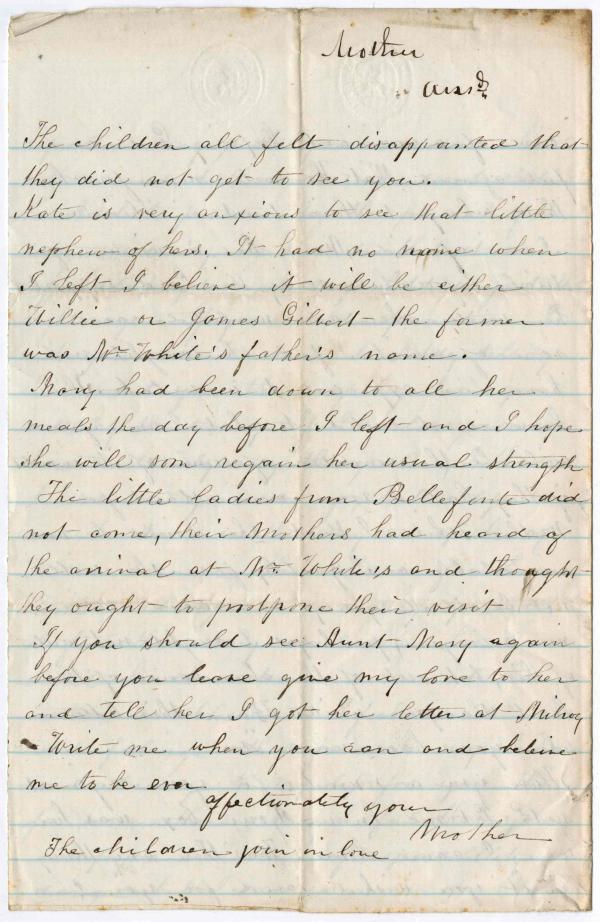 Mother
Ansd
The children all felt disappointed that
they did not get to see you.
Kate is very anxious to see that little
nephew of hers. It had no name when
I left I believe it will be either
Willie or James Gilbert the former
was Mr White's father's name.
Mary had been down to all her
meals the day before I left and I hope
she will soon regain her usual strength
The little ladies from Bellefonte did
not come, their Mothers had heard of
the arrival at Mr. White's and thought
they ought to postpone their visit
If you should see Aunt Mary again
before you leave give my love to her
and tell her I got her letter at Milroy
Write me when you can and believe
me to be ever
affectionately your
Mother
The children join in love